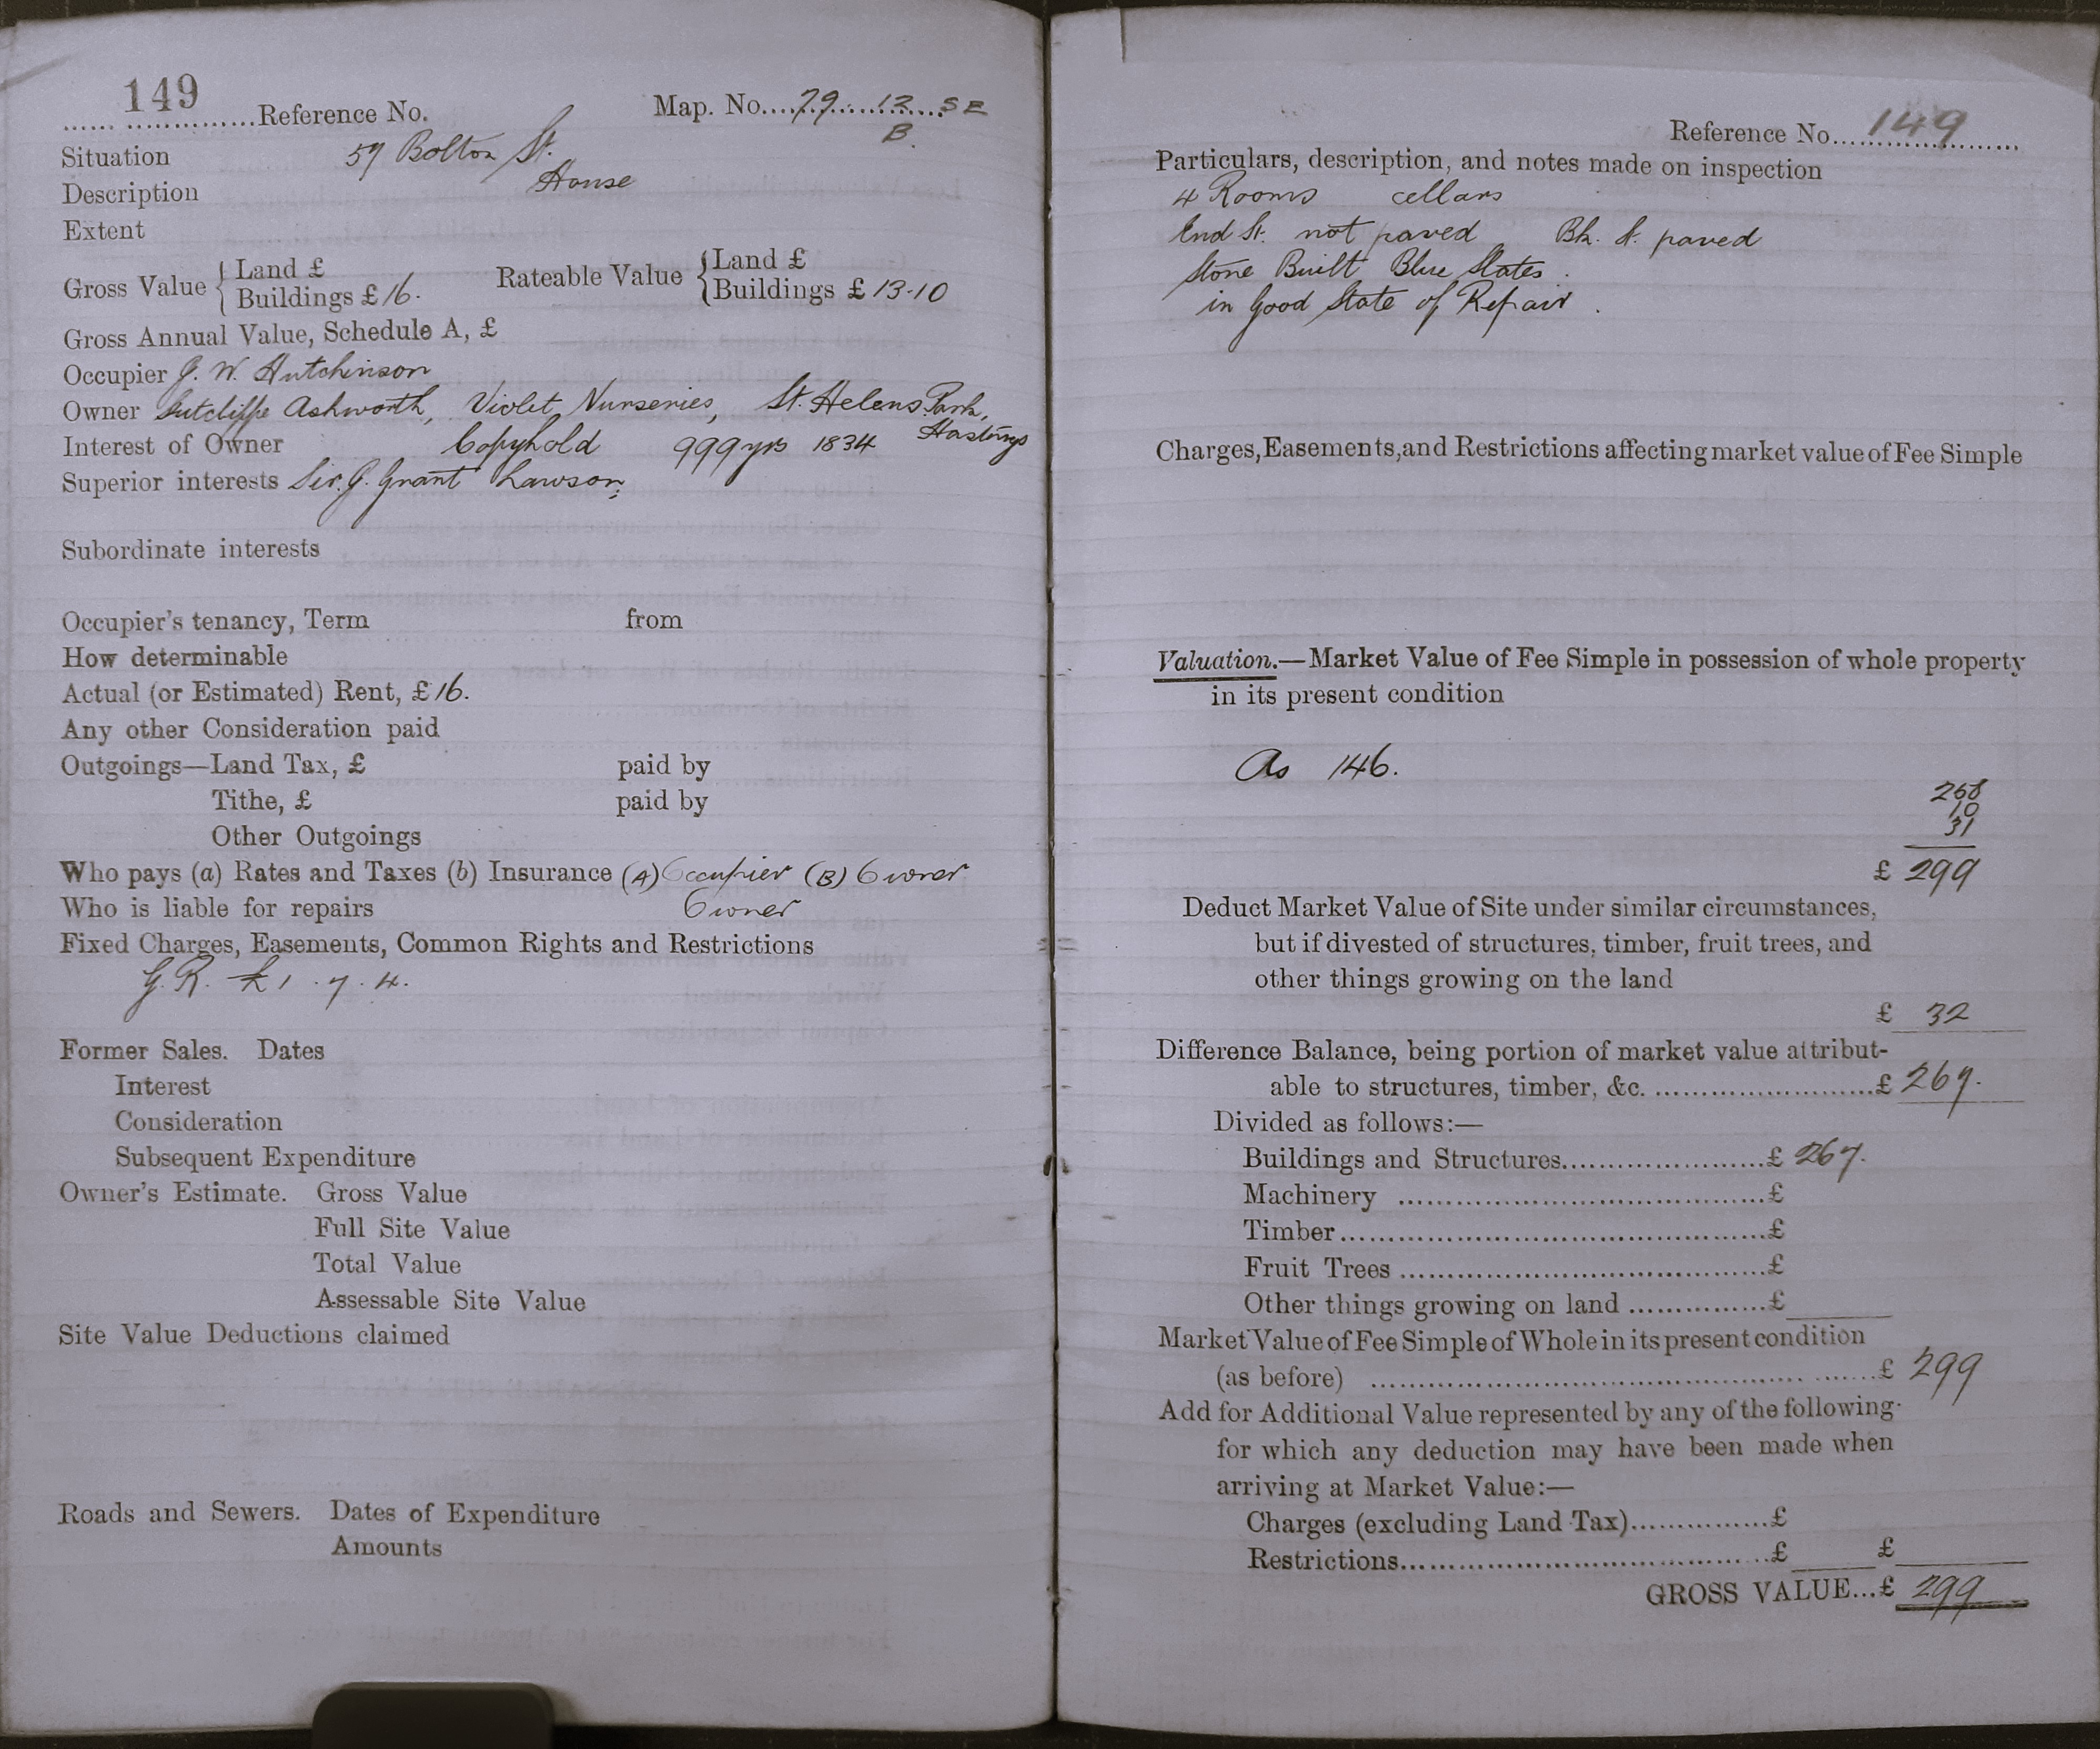 149
Reference No. Map. No. 79 12 SE
B.
Situation 57 Bolton St.
Description House
Extent
Gross Value { Land £
Buildings £ 16.
Rateable Value { Land £
Buildings £ 13-10
Gross Annual Value, Schedule A, £
Occupier J. W. Hutchinson
Owner Sutcliffe Ashworth, Violet Nurseries, St. Helens Park,
Hastings
Interest of Owner Copyhold 999 yrs 1834
Superior interests Sir. J. Grant Lawson
Subordinate interests
Occupier's tenancy, Term from
How determinable
Actual (or Estimated) Rent, £ 16.
Any other Consideration paid
Outgoings—Land Tax, £ paid by
Tithe, £ paid by
Other Outgoings
Who pays (a) Rates and Taxes (b) Insurance (A) Occupier (B) Owner
Who is liable for repairs Owner
Fixed Charges, Easements, Common Rights and Restrictions
G. R. £1 . 7 . 4.
Former Sales. Dates
Interest
Consideration
Subsequent Expenditure
Owner's Estimate. Gross Value
Full Site Value
Total Value
Assessable Site Value
Site Value Deductions claimed
Roads and Sewers. Dates of Expenditure
Amounts
Reference No. 149
Particulars, description, and notes made on inspection
4 Rooms cellars
End St. not paved Bk. St. paved
Stone Built Blue Slates.
in Good State of Repair.
Charges, Easements, and Restrictions affecting market value of Fee Simple
Valuation.—Market Value of Fee Simple in possession of whole property
in its present condition
As 146.
268
10
31
£ 299
Deduct Market Value of Site under similar circumstances,
but if divested of structures, timber, fruit trees, and
other things growing on the land
£ 32
Difference Balance, being portion of market value attribut-
able to structures, timber, &c. £ 267.
Divided as follows:—
Buildings and Structures £ 267.
Machinery £
Timber £
Fruit Trees £
Other things growing on land £
Market Value of Fee Simple of Whole in its present condition
(as before) £ 299
Add for Additional Value represented by any of the following
for which any deduction may have been made when
arriving at Market Value:—
Charges (excluding Land Tax) £
Restrictions £ £
GROSS VALUE...£ 299